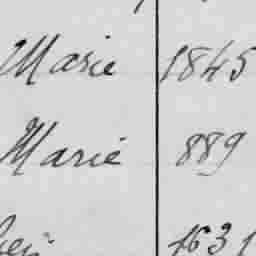 Marie 1845
Marie 889
1631